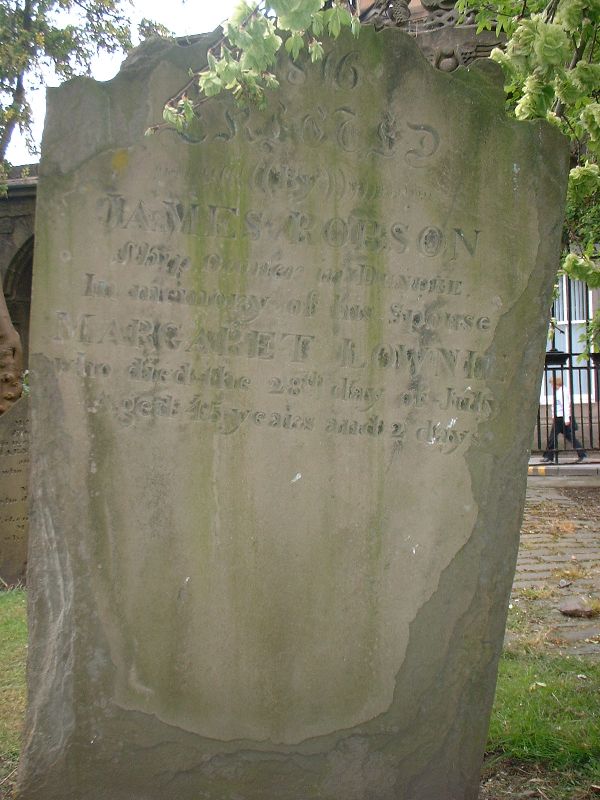 ERECTED
(By)
JAMES ROBSON
Ship Owner in DUNDEE
In memory of his Spouse
MARGARET LOWNIE
who died the 28th day of July
Aged 45 years and 2 days